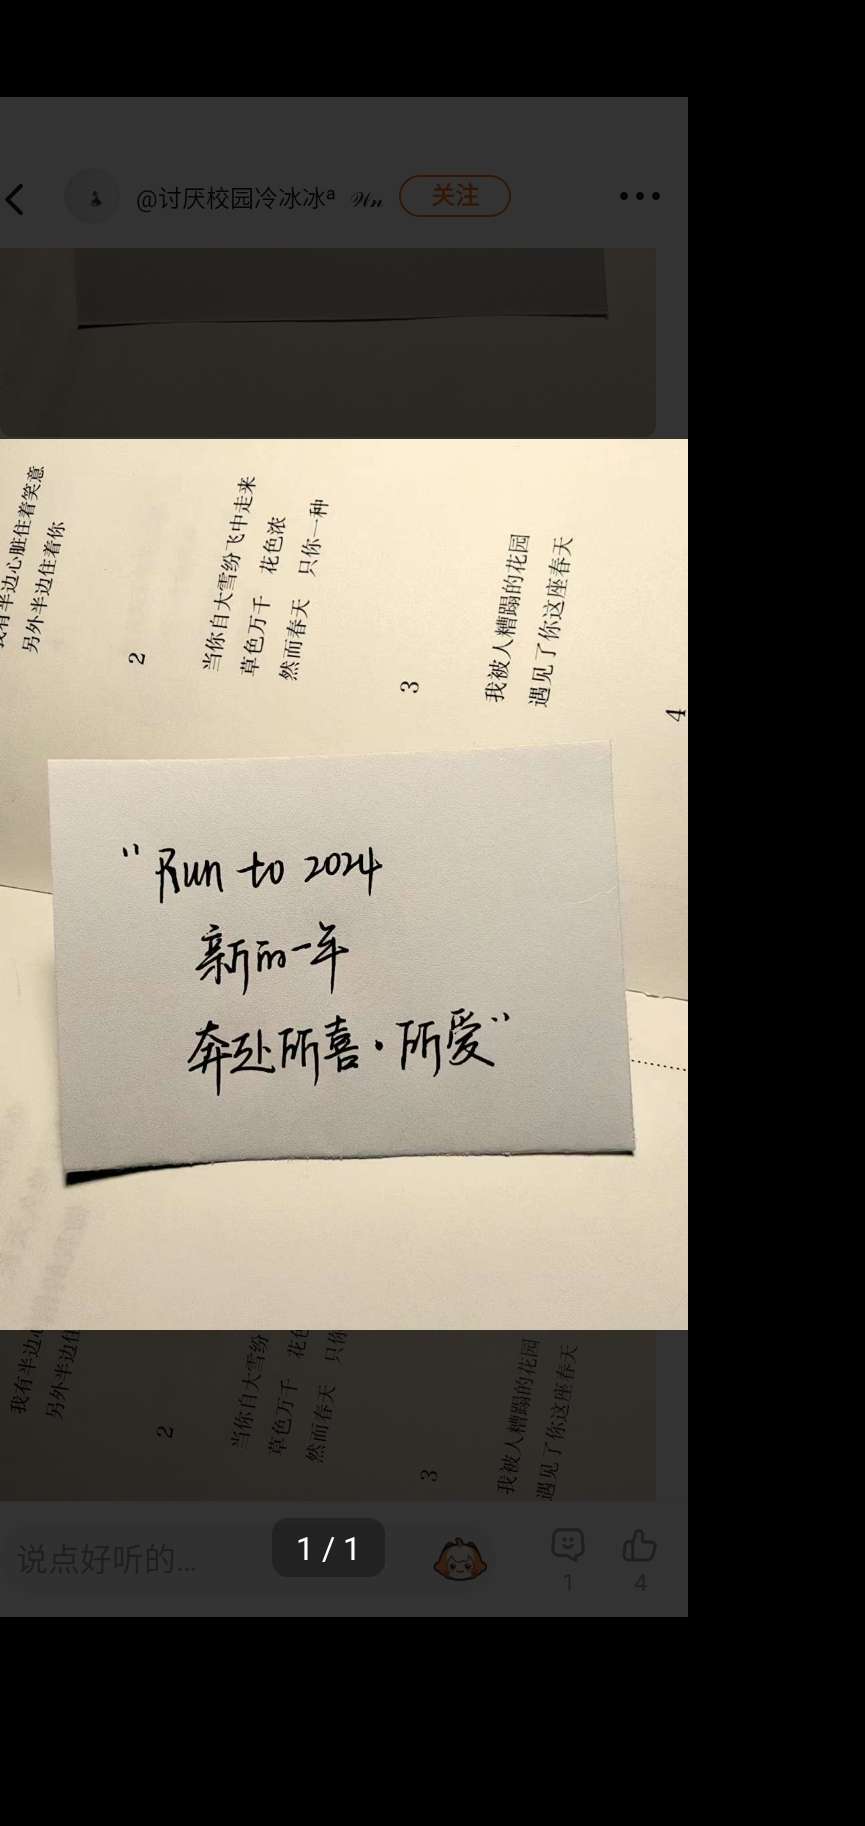 @讨厌校园冷冰冰ª 𝒰𝓃
关注
我有半边心脏住着笑意
另外半边住着你
2
当你自大雪纷飞中走来
草色万千 花色浓
然而春天 只你一种
3
我被人糟蹋的花园
遇见了你这座春天
4
"Run to 2024
新的一年
奔赴所喜·所爱"
我有半边心
另外半边住
2
当你自大雪纷
草色万千 花色
然而春天 只你
3
我被人糟蹋的花园
遇见了你这座春天
说点好听的...
1/1
1
4